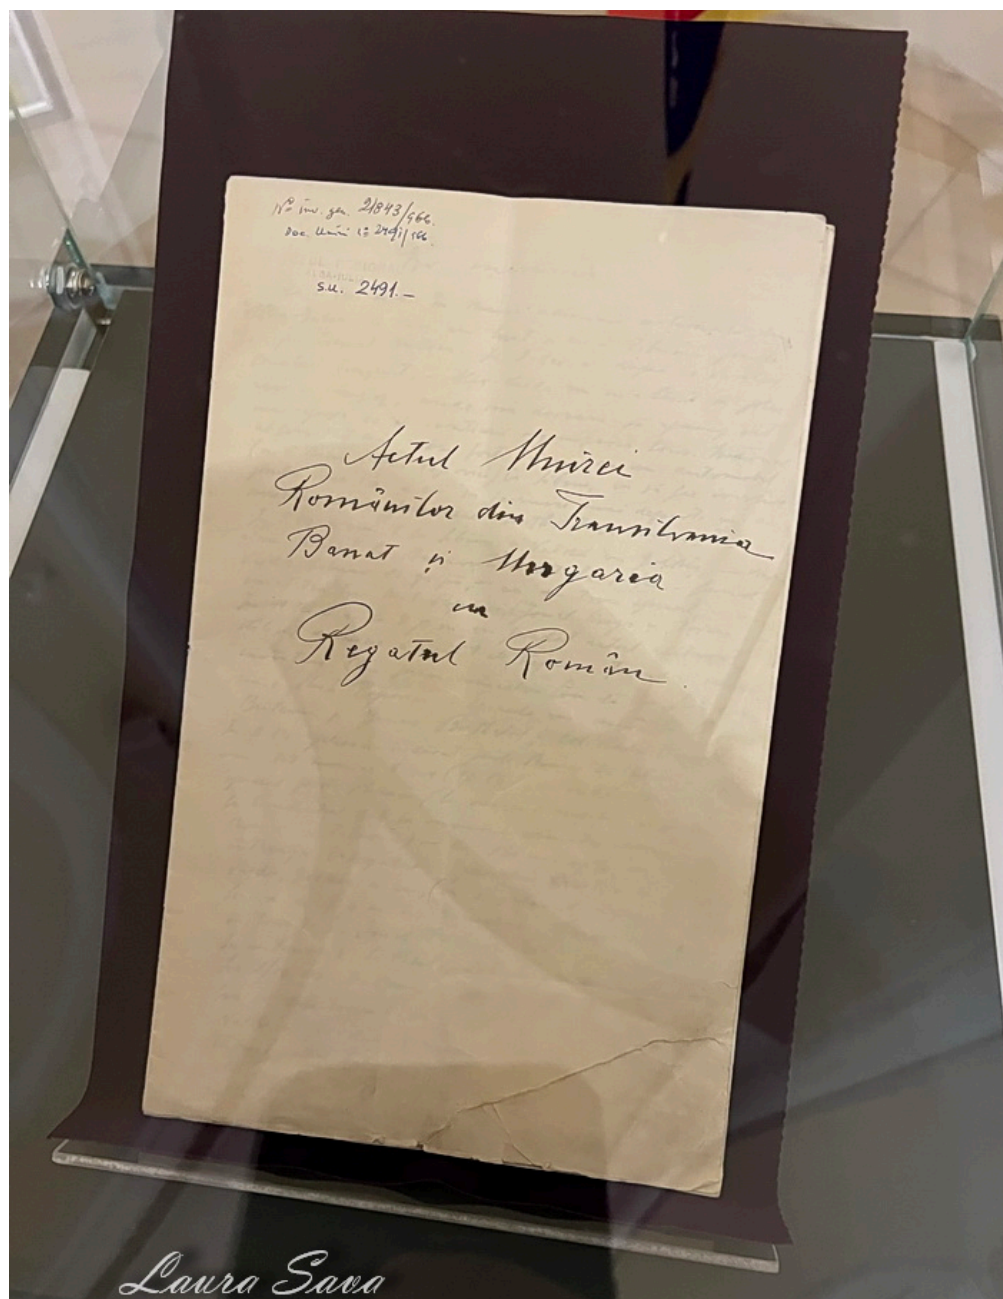 No inv. gen. 21843/966.
Doc. Unirii
S.U. 2491.—
Actul Unirei
Românilor din Transilvania
Banat și Ungaria
cu
Regatul Român.
Laura Sava